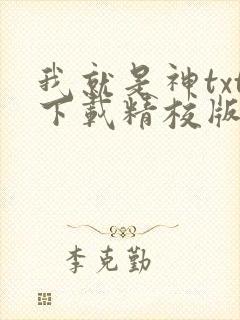 我就是神txt
下载精校版
李克勤